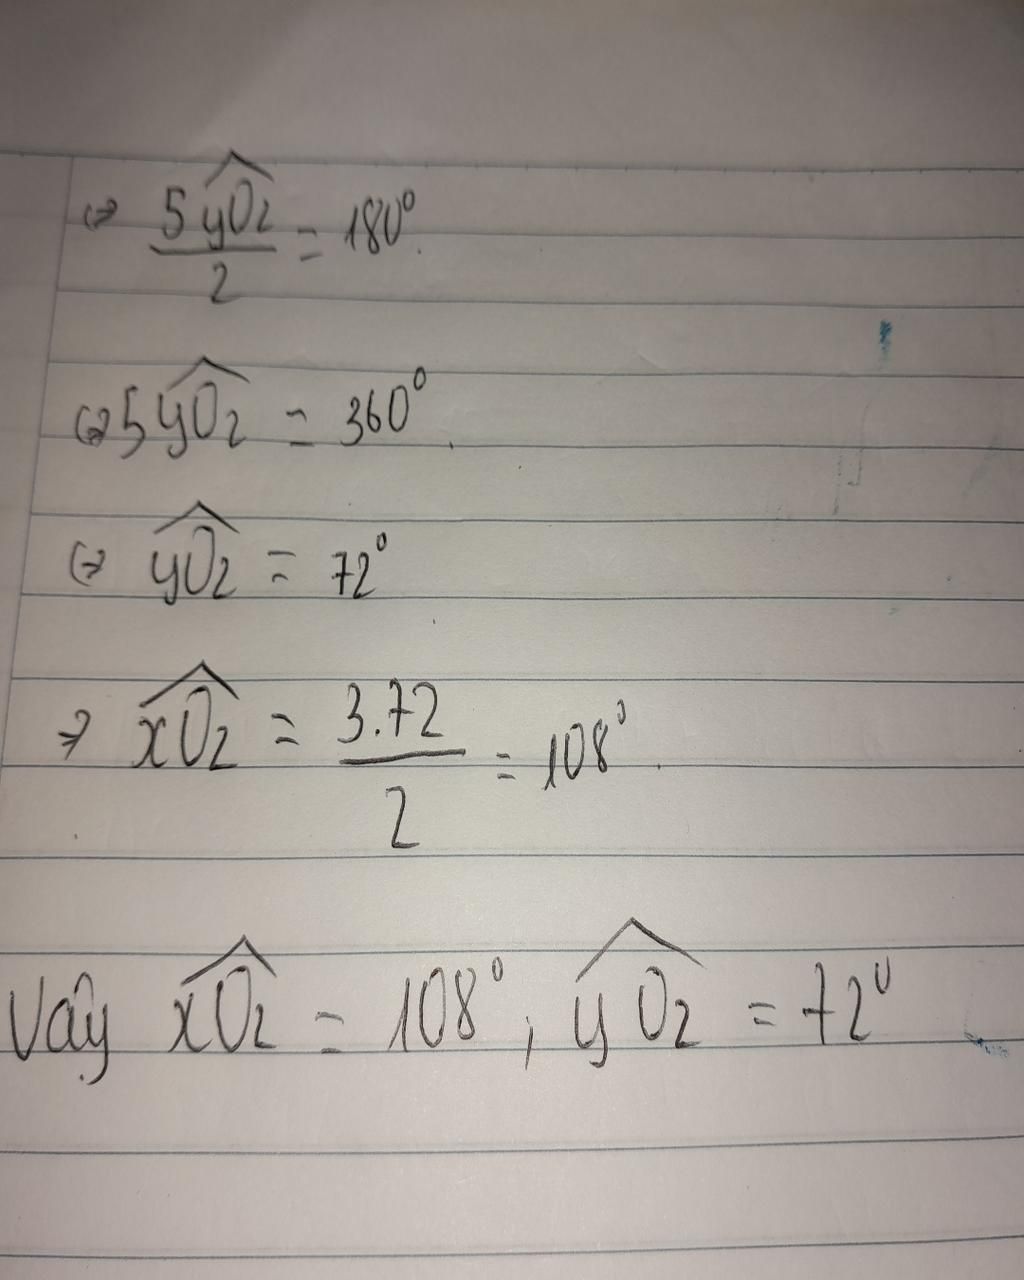 ⇔ 5yO2/2 = 180°.
⇔ 5yO2 = 360°.
⇔ yO2 = 72°
⇒ xO2 = 3.72/2 = 108°.
Vậy xO2 = 108° ; yO2 = 72°